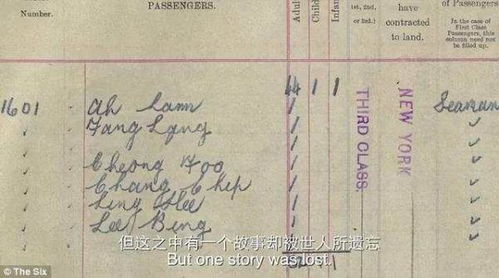 Number.
PASSENGERS.
Adul
Child
Infan
1st, 2nd,
or 3rd.)
have
contracted
to land.
of Passengers
In the case of
First Class
Passengers, this
column need not
be filled up.
44 1 1
1601 Ah Lam / Seaman
Fang Lang /
Cheong Foo /
Chang Chip /
Ling Hee /
Lee Bing /
THIRD CLASS.
NEW YORK
但这之中有一个故事却被世人所遗忘
But one story was lost.
© The Six